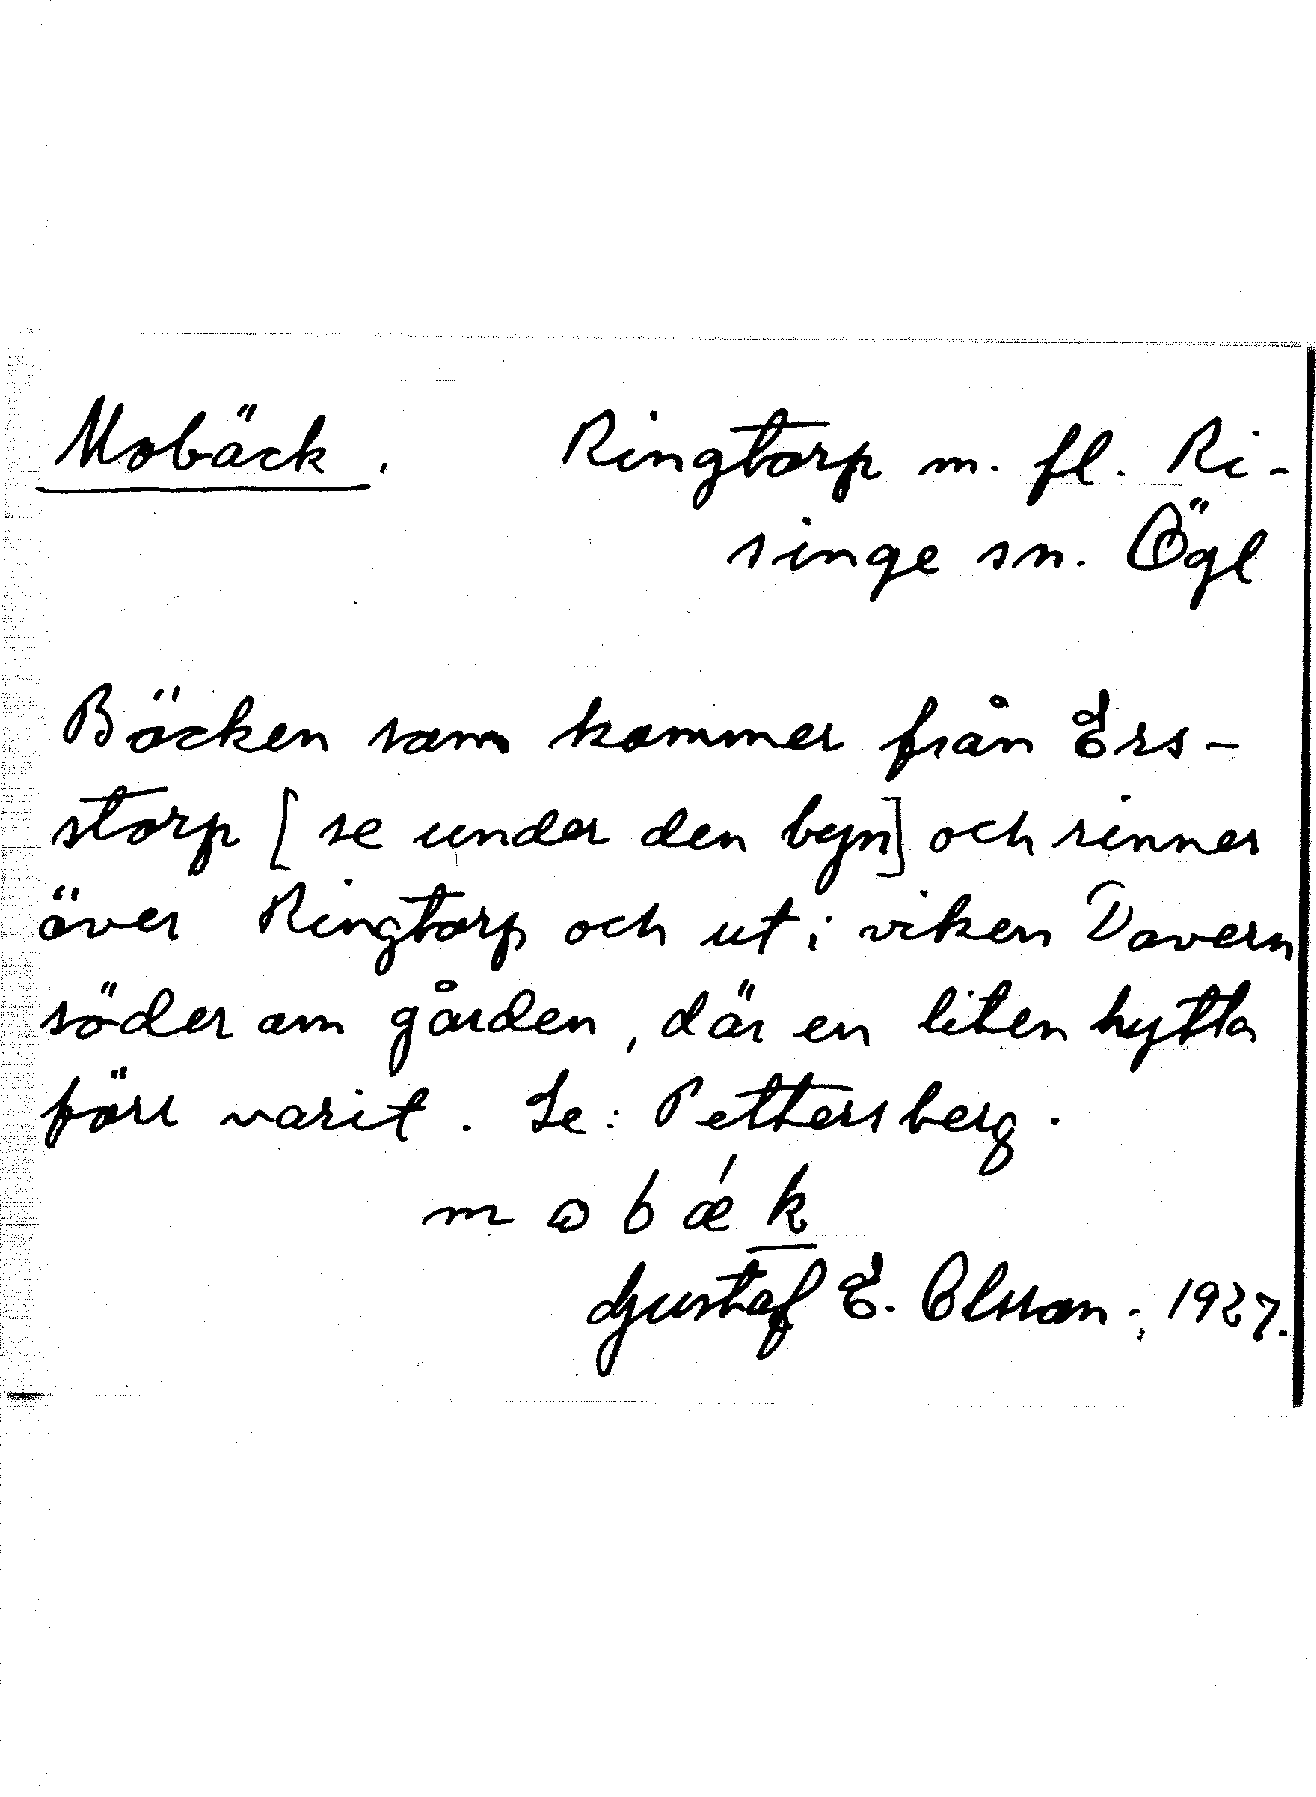 Mobäck. Ringtorp m. fl. Ri-
singe sn. Ögl
Bäcken som kommer från Ers-
storp [se under den byn] och rinner
över Ringtorp och ut i viken Davern
söder om gården, där en liten hytta
förr varit. Se: Pettersberg.
mɷbǽk
Gustaf E. Olsson.; 1927.